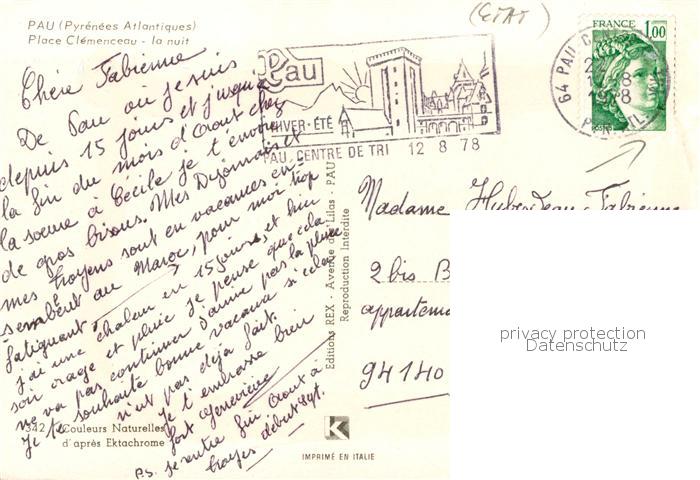 PAU (Pyrénées Atlantiques)
Place Clémenceau - la nuit
(ETAT)
FRANCE
1,00
64 PAU CEN
Pau
HIVER-ÉTÉ
PAU, CENTRE DE TRI 12 8 78
Chère Fabienne
De Pau où je suis
depuis 15 jours et jusqu'à
la fin du mois d'Août chez
la soeur à Cécile je t'envoie
de gros bisous. Mes Dijonnais et
mes troyens sont en vacances en-
semble au Maroc, pour moi trop
fatiguant
j'ai une chaleur en 15 jours et hier
soir orage et pluie je pense que cela
ne va pas continuer j'aime pas la pluie
Je te souhaite bonne vacance si cela
n'est pas déjà fait.
Je t'embrasse bien
fort Geneviève
P.S. je rentre fin Août à
troyes début Sept.
Madame Fabienne
2 bis B
appartem
94140
342 Couleurs Naturelles
d'après Ektachrome
Editions REX - Avenue des Lilas - PAU
Reproduction Interdite
K
IMPRIMÉ EN ITALIE
privacy protection
Datenschutz